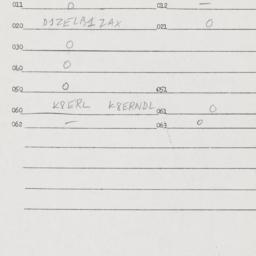 011 0 012 —
020 D1ZELB1ZAX 021 0
030 0
040 0
050 0 051
060 K8ERL K8ERNDL 061 0
062 — 063 0